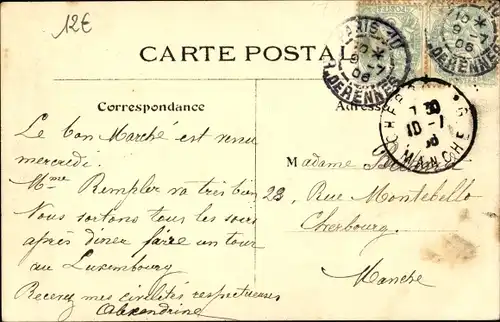 12€
PARIS 110
R. DERENNES
CARTE POSTALE
CHERBOURG
7 30
10 - 1
06
MANCHE
Correspondance
Adresse
Le bon Marché est venu
mercredi.
Mme Rempler va très bien
Nous sortons tous les soirs
après dîner faire un tour
au Luxembourg
Recevez mes civilités respectueuses
Alexandrine
Madame
23, Rue Montebello
Cherbourg.
Manche